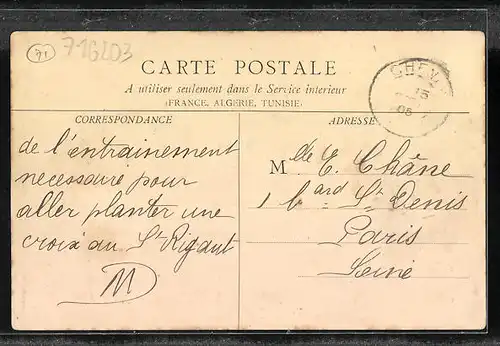 71
716203
CARTE POSTALE
A utiliser seulement dans le Service interieur
(FRANCE, ALGERIE, TUNISIE)
CORRESPONDANCE
de l'entrainement
necessaire pour
aller planter une
croix au St Rigaut
M
ADRESSE
Mlle E. Châne
1 bard St Denis
Paris
Seine
05